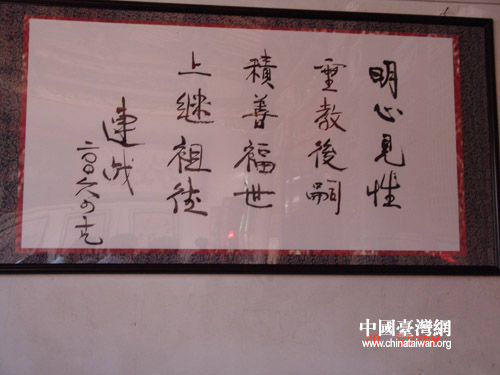 明心見性
垂教後嗣
積善福世
上继祖德
連战
二〇〇六四十九
中國臺灣網
www.chinataiwan.org